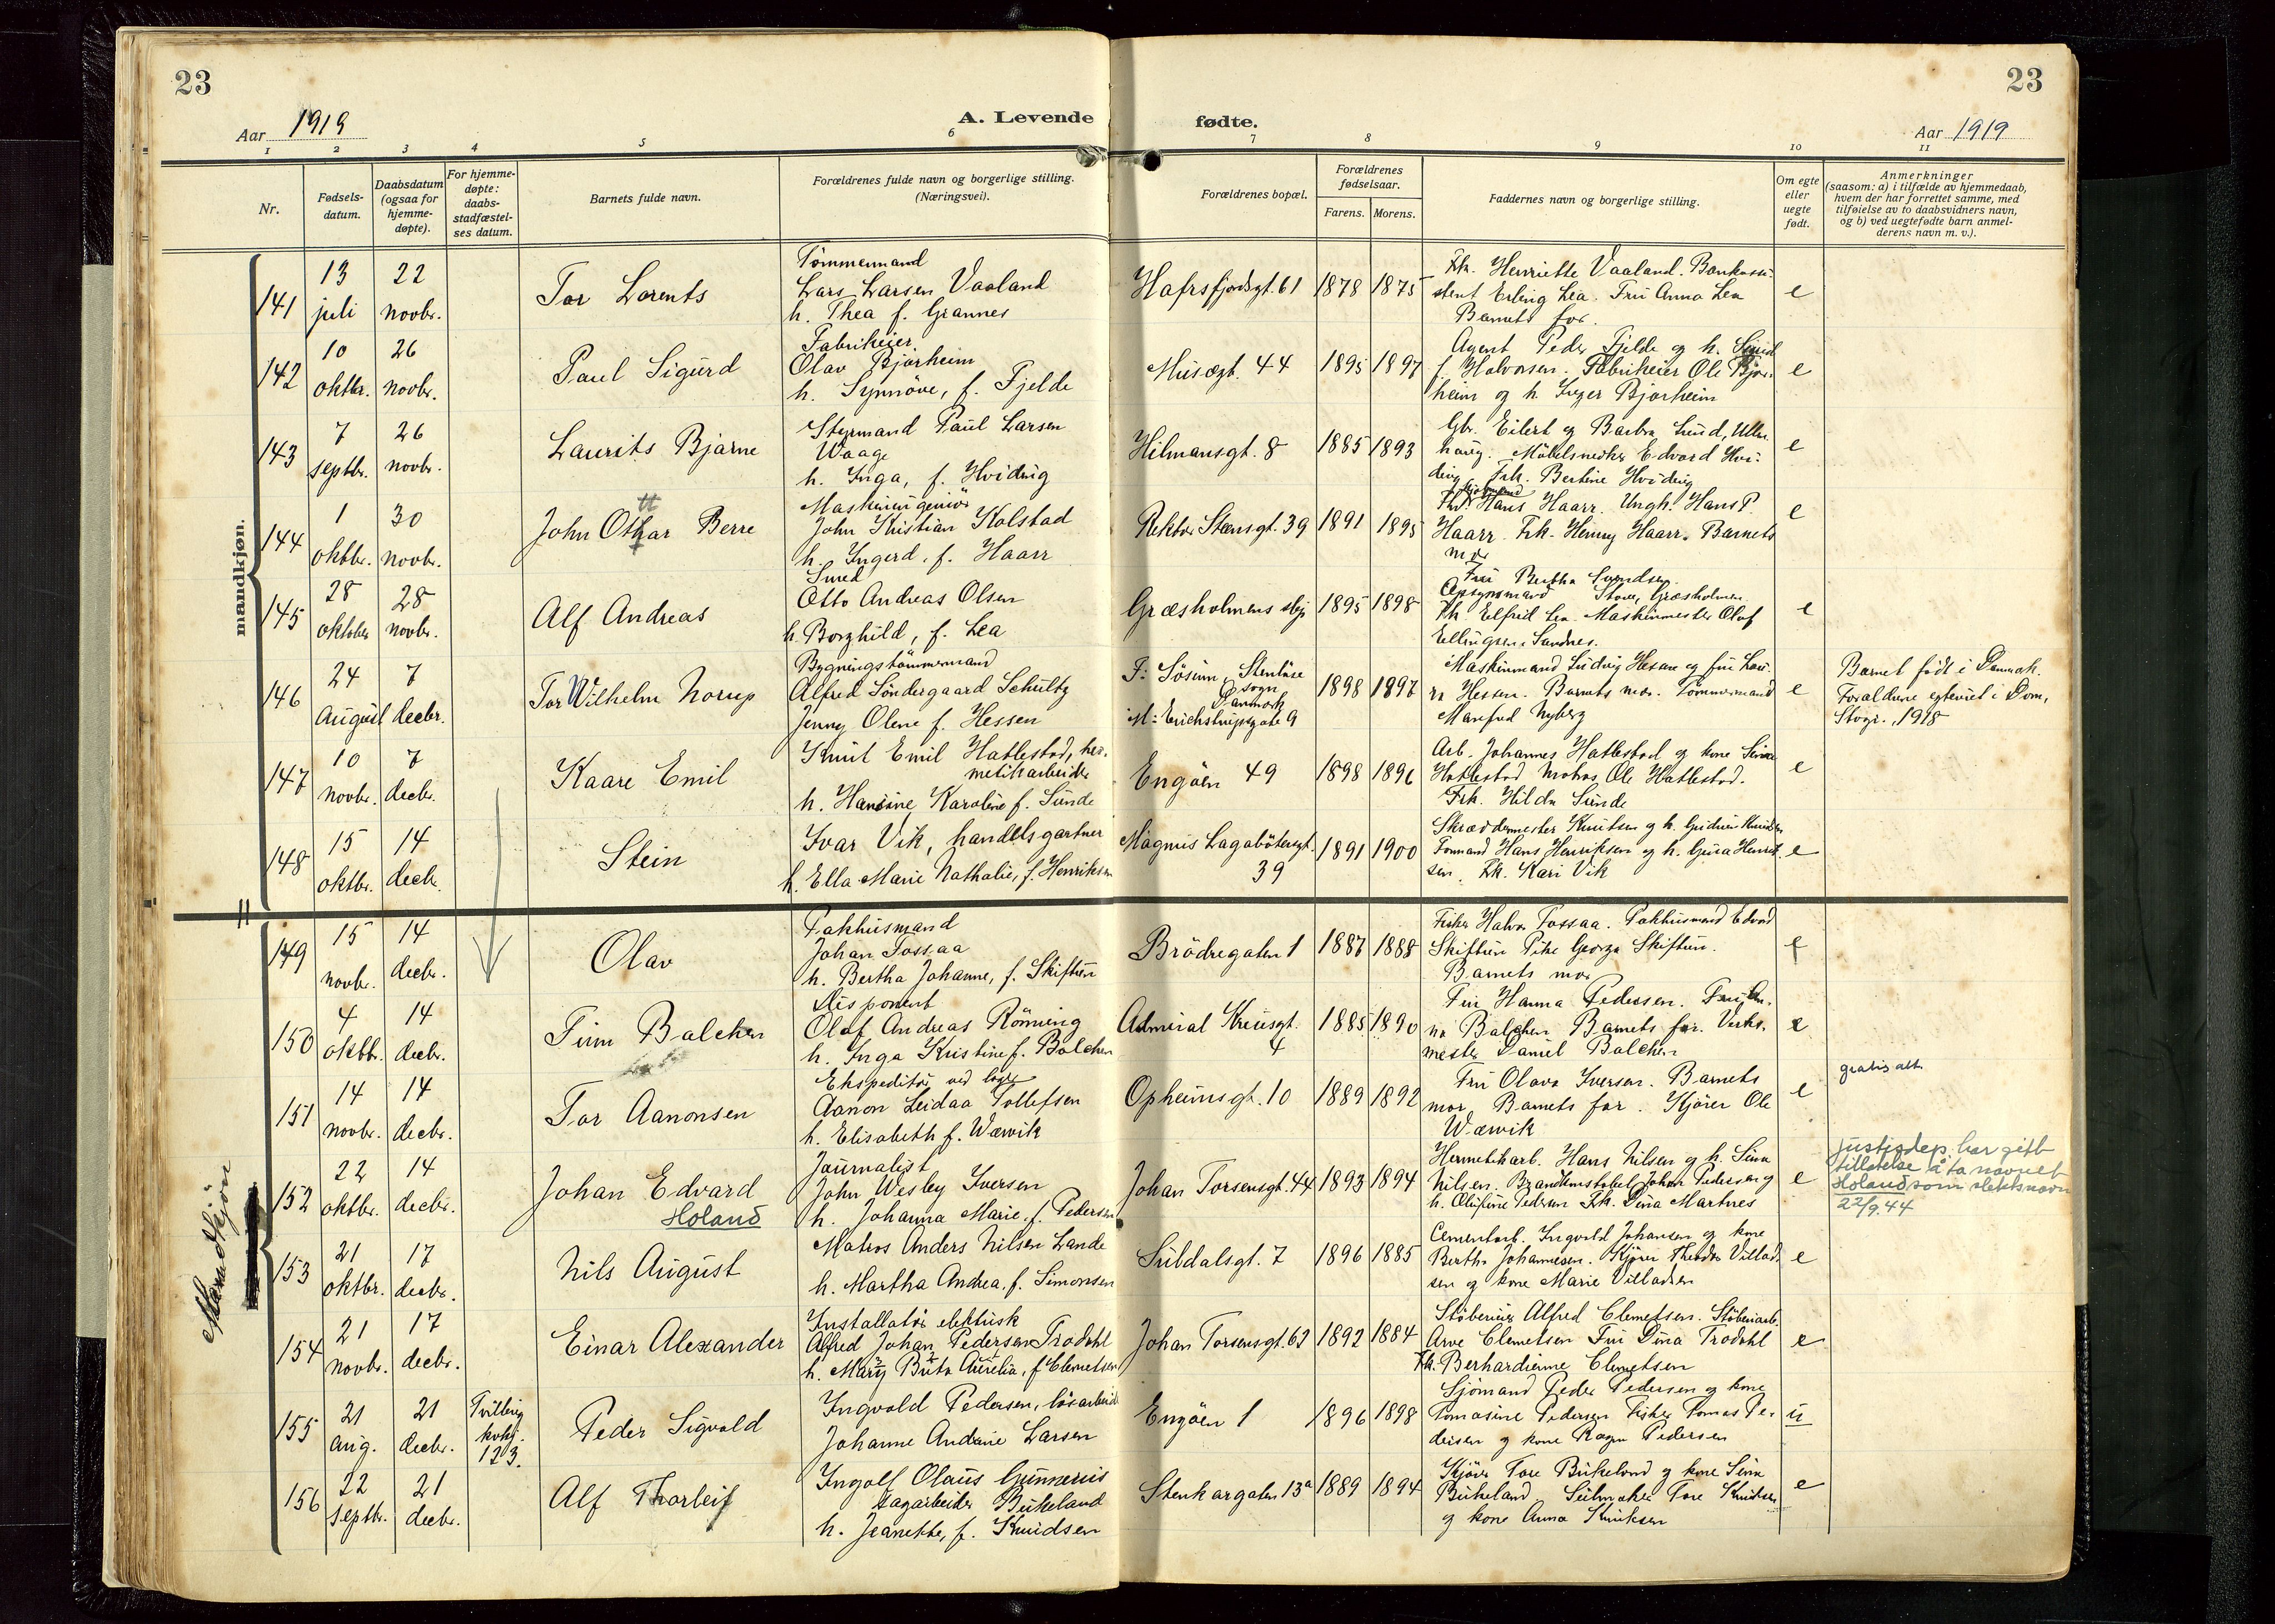 23
Aar 1919
A. Levende
fødte.
Aar 1919
23
1 2 3 4 5 6 7 8 9 10 11
Nr.
Fødsels-
datum.
Daabsdatum
(ogsaa for
hjemme-
døpte).
For hjemme-
døpte:
daabs-
stadfæstel-
ses datum.
Barnets fulde navn.
Forældrenes fulde navn og borgerlige stilling.
(Næringsvei).
Forældrenes bopæl.
Forældrenes
fødselsaar.
Farens. Morens.
Faddernes navn og borgerlige stilling.
Om egte
eller
uegte
født.
Anmerkninger
(saasom: a) i tilfælde av hjemmedaab,
hvem der har forrettet samme, med
tilføielse av to daabsvidners navn,
og b) ved uegtefødte barn anmel-
derens navn m. v.).
mandkjøn.
141
13 juli
22 novbr.
Tor Lorents
Tømmermand
Lars Larsen Vaaland
h. Thea f. Grannes
Hafrsfjordsgt. 61
1878 1875
Frk. Henriette Vaaland. Bankassi-
stent Erling Lea. Fru Anna Lea
Barnets far.
e
142
10 oktbr.
26 novbr.
Paul Sigurd
Fabrikeier
Olav Bjørheim
h. Synnøve, f. Fjelde
Musægt. 44
1895 1897
Agent Peder Fjelde og h.
f. Halvorsen. Fabrikeier Ole Bjør-
heim og h. Inger Bjørheim
e
143
7 septbr.
26 novbr.
Laurits Bjarne
Styrmand Paul Larsen
Waage
h. Inga, f. Hviding
Hilmansgt. 8
1885 1893
Gbr. Eilert og Barbra Lund, Ullen
haug. Møbelsnedker Edvard Hvi-
ding Frk. Bertine Hviding
e
144
1 oktbr.
30 novbr.
tt
John Othar Berre
Maskiningeniør
John Kristian Kolstad
h. Ingerd, f. Haarr
Rektor Steensgt. 39
1891 1895
Hans Haarr. Ungk. Hans P.
Haarr. Frk. Henny Haarr. Barnets
mor
e
145
28 oktober
28 novbr.
Alf Andreas
Smed
Otto Andreas Olsen
h. Borghild, f. Lea
Græsholmens slip
1895 1898
Fru Bertha Svendsen
Opsynsmand Græsholmen.
Frk Elfrid Lea. Maskinmester Olaf
Ellingsen, Sandnes.
e
146
24 August
7 decbr.
Tor Wilhelm Norup
Bygningstømmermand
Alfred Søndergaard Schultz
Jenny Olene f. Hessen
F: Søsum, Stenløse
sogn
Danmark
M: Erichstrupsgate 9
1898 1897
Maskinmand Ludvig Hessen og fru Lau-
ra Hessen. Barnets mor. Tømmermand
Manfred Nyberg
e
Barnet født i Danmark.
Forældrene egteviet i Dom,
Stvgr., 1918
147
10 novbr.
7 decbr.
Kaare Emil
Knut Emil Hatlestad, her-
metikarbeider
h. Hansine Karoline f. Sunde
Engøen 49
1898 1896
Arb. Johannes Hatlestad og kone Sevine
Hatlestad Matros Ole Hatlestad.
Frk. Hilda Sunde
e
148
15 oktbr.
14 decbr.
Stein
Ivar Vik, handelsgartner
h. Ella Marie Nathalie, f. Henriksen
Magnus Lagabøtersgt.
39
1891 1900
Skræddermester Knutsen og h. Gudrun Knudsen
Formand Hans Henriksen og h. Gina Henrik-
sen. Frk. Kari Vik
e
Mandkjøn
149
15 novbr.
14 decbr.
Olav
Pakhusmand
Johan Tossaa
h. Bertha Johanne, f. Skiftun
Brødregaten 1
1887 1888
Fisker Halvor Tossaa. Pakhusmand Edvard
Skiftun Pike Georga Skiftun.
Barnets mor
e
150
4 oktbr.
14 decbr.
Finn Balchen
Disponent
Olaf Andreas Rönning
h. Inga Kristine f. Balchen
Admiral Kruusgt.
4
1885 1890
Fru Hanna Pedersen. Fru An-
na Balchen Barnets far. Verks-
mester Daniel Balchen
e
151
14 novbr.
14 decbr.
Tor Aanonsen
Ekspeditør ved
Aanon Leidaa Tollefsen
h. Elisabeth f. Wærvik
Opheimsgt. 10
1889 1892
Fru Olava Iversen. Barnets
mor. Barnets far. Kjører Ole
Wærvik
e
gratis att.
152
22 oktbr.
14 decbr.
Johan Edvard
Holand
Journalist
John Wesley Iversen
h. Johanna Marie f. Pedersen
Johan Torsensgt. 44
1893 1894
Hermetikarb. Hans Nilsen og h. Sina
Nilsen. Brandkonstabel Johan Pedersen og
h. Olufine Pedersen Frk. Dina Martnes
e
Justisdep. har gitt
tillatelse å ta navnet
Holand som slektsnavn
22/9.44
153
21 oktbr.
17 decbr.
Nils August
Matros Anders Nilsen Lande
h. Martha Andrea, f. Simonsen
Suldalsgt. 7
1896 1885
Cementarb. Ingvald Johansen og kone
Bertha Johannesen. Kjører Theodor Villad-
sen og kone Marie Villadsen
e
154
21 novbr.
17 decbr.
Einar Alexander
Installatør elektrisk
Alfred Johan Pedersen Trodahl
h. Mary Brita Aurelia, f. Clemetsen
Johan Torsensgt. 63
1892 1884
Støberieier Alfred Clemetsen. Støberiarb.
Arve Clemetsen Fru Dina Trodahl
Frk. Berhardienne Clemetsen
e
155
21 aug.
21 decbr.
Tvilling
kvkj.
123.
Peder Sigvald
Ingvald Pedersen, løsarbeider
Johanne Andrine Larsen
Engøen 1
1896 1898
Sjömand Peder Pedersen og kone
Tomasine Pedersen Fisker Tomas Pe-
dersen og kone Ragna Pedersen
u
156
22 septbr.
21 decbr.
Alf Thorleif
Ingolf Olaus Gunnerius
dagarbeider Birkeland
h. Jeanette, f. Knudsen
Stenkargaten 13a
1889 1894
Kjører Tore Birkeland og kone Sina
Birkeland Seilmaker Tore Knudsen
og kone Anna Knudsen
e